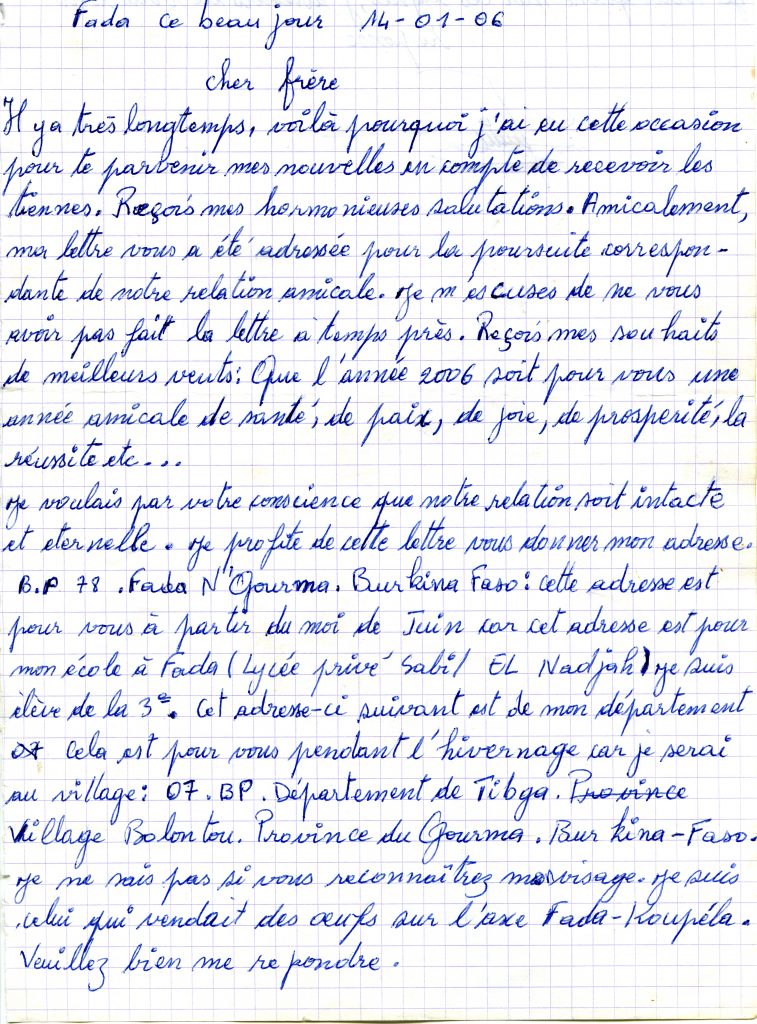 Fada ce beau jour 14-01-06
cher frère
Il y a très longtemps, voilà pourquoi j'ai eu cette occasion
pour te parvenir mes nouvelles en compte de recevoir les
tiennes. Reçois mes harmonieuses salutations. Amicalement,
ma lettre vous a été adressée pour la poursuite correspon-
dante de notre relation amicale. Je m'escuses de ne vous
avoir pas fait la lettre à temps près. Reçois mes souhaits
de meilleurs vents: Que l'année 2006 soit pour vous une
année amicale de santé, de paix, de joie, de prosperité, la
réussite etc...
Je voulais par votre conscience que notre relation soit intacte
et eternelle. Je profite de cette lettre vous donner mon adresse.
B.P 78. Fada N''Gourma. Burkina Faso: cette adresse est
pour vous à partir du moi de Juin car cet adresse est pour
mon école à Fada (Lycée privé Sabil EL Nadjah) Je suis
élève de la 3e. Cet adresse-ci suivant est de mon département
07 Cela est pour vous pendant l'hivernage car je serai
au village: 07. BP. Département de Tibga. Province
Village Bolontou. Province du Gourma. Burkina-Faso.
Je ne sais pas si vous reconnaîtrez mon visage. Je suis
celui qui vendait des œufs sur l'axe Fada-Koupéla.
Veuillez bien me repondre.